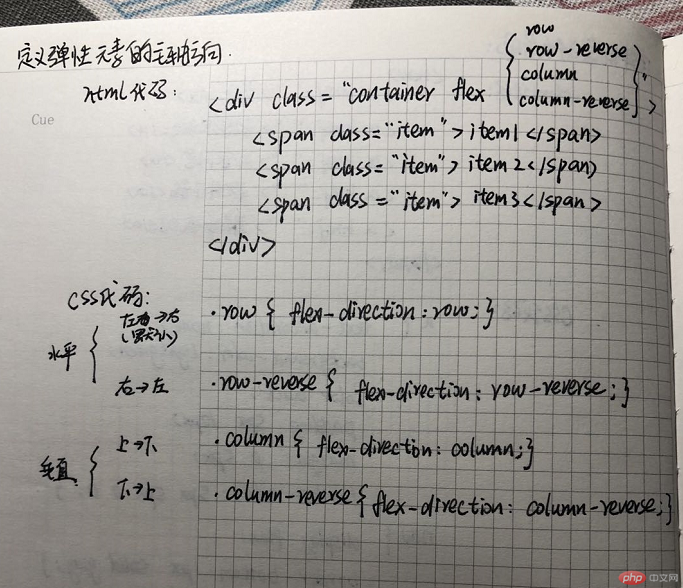 定义弹性元素的主轴方向.
html代码:
row
row-reverse
column
column-reverse
<div class="container flex { } ">
Cue
<span class="item">item1</span>
<span class="item">item2</span>
<span class="item">item3</span>
</div>
CSS代码:
水平
左→右
(默认)
.row { flex-direction:row;}
右→左
.row-reverse { flex-direction: row-reverse;}
垂直
上→下
.column { flex-direction: column;}
下→上
.column-reverse{flex-direction: column-reverse;}
php 中文网